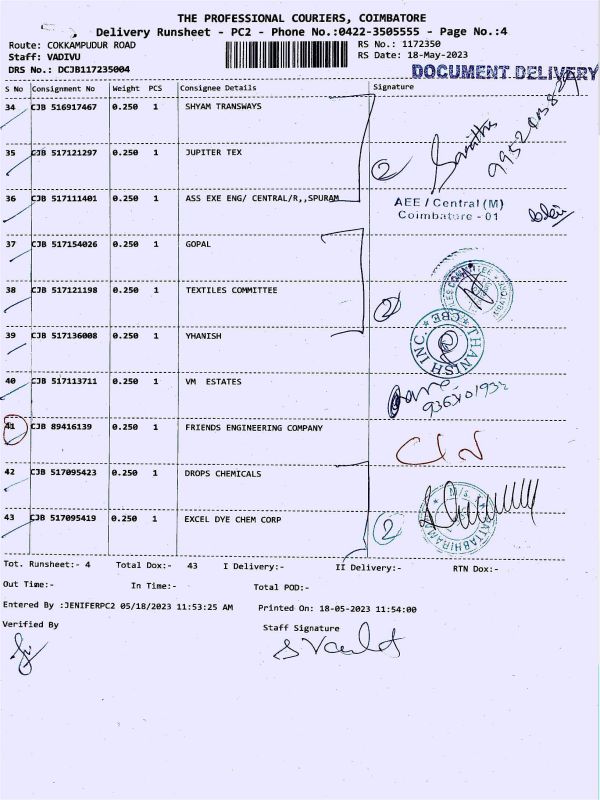 THE PROFESSIONAL COURIERS, COIMBATORE
Delivery Runsheet - PC2 - Phone No.:0422-3505555 - Page No.:4
Route: COKKAMPUDUR ROAD RS No.: 1172350
Staff: VADIVU RS Date: 18-May-2023
DRS No.: DCJB117235004 DOCUMENT DELIVERY
S No Consignment No Weight PCS Consignee Details Signature
34 CJB 516917467 0.250 1 SHYAM TRANSWAYS
35 CJB 517121297 0.250 1 JUPITER TEX
2
36 CJB 517111401 0.250 1 ASS EXE ENG/ CENTRAL/R,,SPURAM
AEE / Central (M)
Coimbatore - 01
37 CJB 517154026 0.250 1 GOPAL
38 CJB 517121198 0.250 1 TEXTILES COMMITTEE
2
39 CJB 517136008 0.250 1 YHANISH
THANISH INC. CBE
40 CJB 517113711 0.250 1 VM ESTATES
41 CJB 89416139 0.250 1 FRIENDS ENGINEERING COMPANY
42 CJB 517095423 0.250 1 DROPS CHEMICALS
43 CJB 517095419 0.250 1 EXCEL DYE CHEM CORP
2
Tot. Runsheet:- 4 Total Dox:- 43 I Delivery:- II Delivery:- RTN Dox:-
Out Time:- In Time:- Total POD:-
Entered By :JENIFERPC2 05/18/2023 11:53:25 AM Printed On: 18-05-2023 11:54:00
Verified By Staff Signature